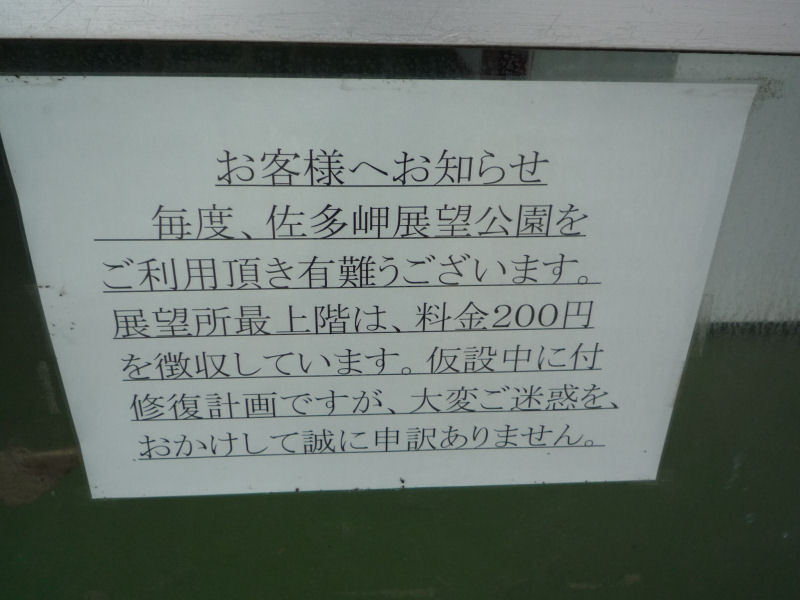 お客様へお知らせ
毎度、佐多岬展望公園を
ご利用頂き有難うございます。
展望所最上階は、料金200円
を徴収しています。仮設中に付
修復計画ですが、大変ご迷惑を、
おかけして誠に申訳ありません。